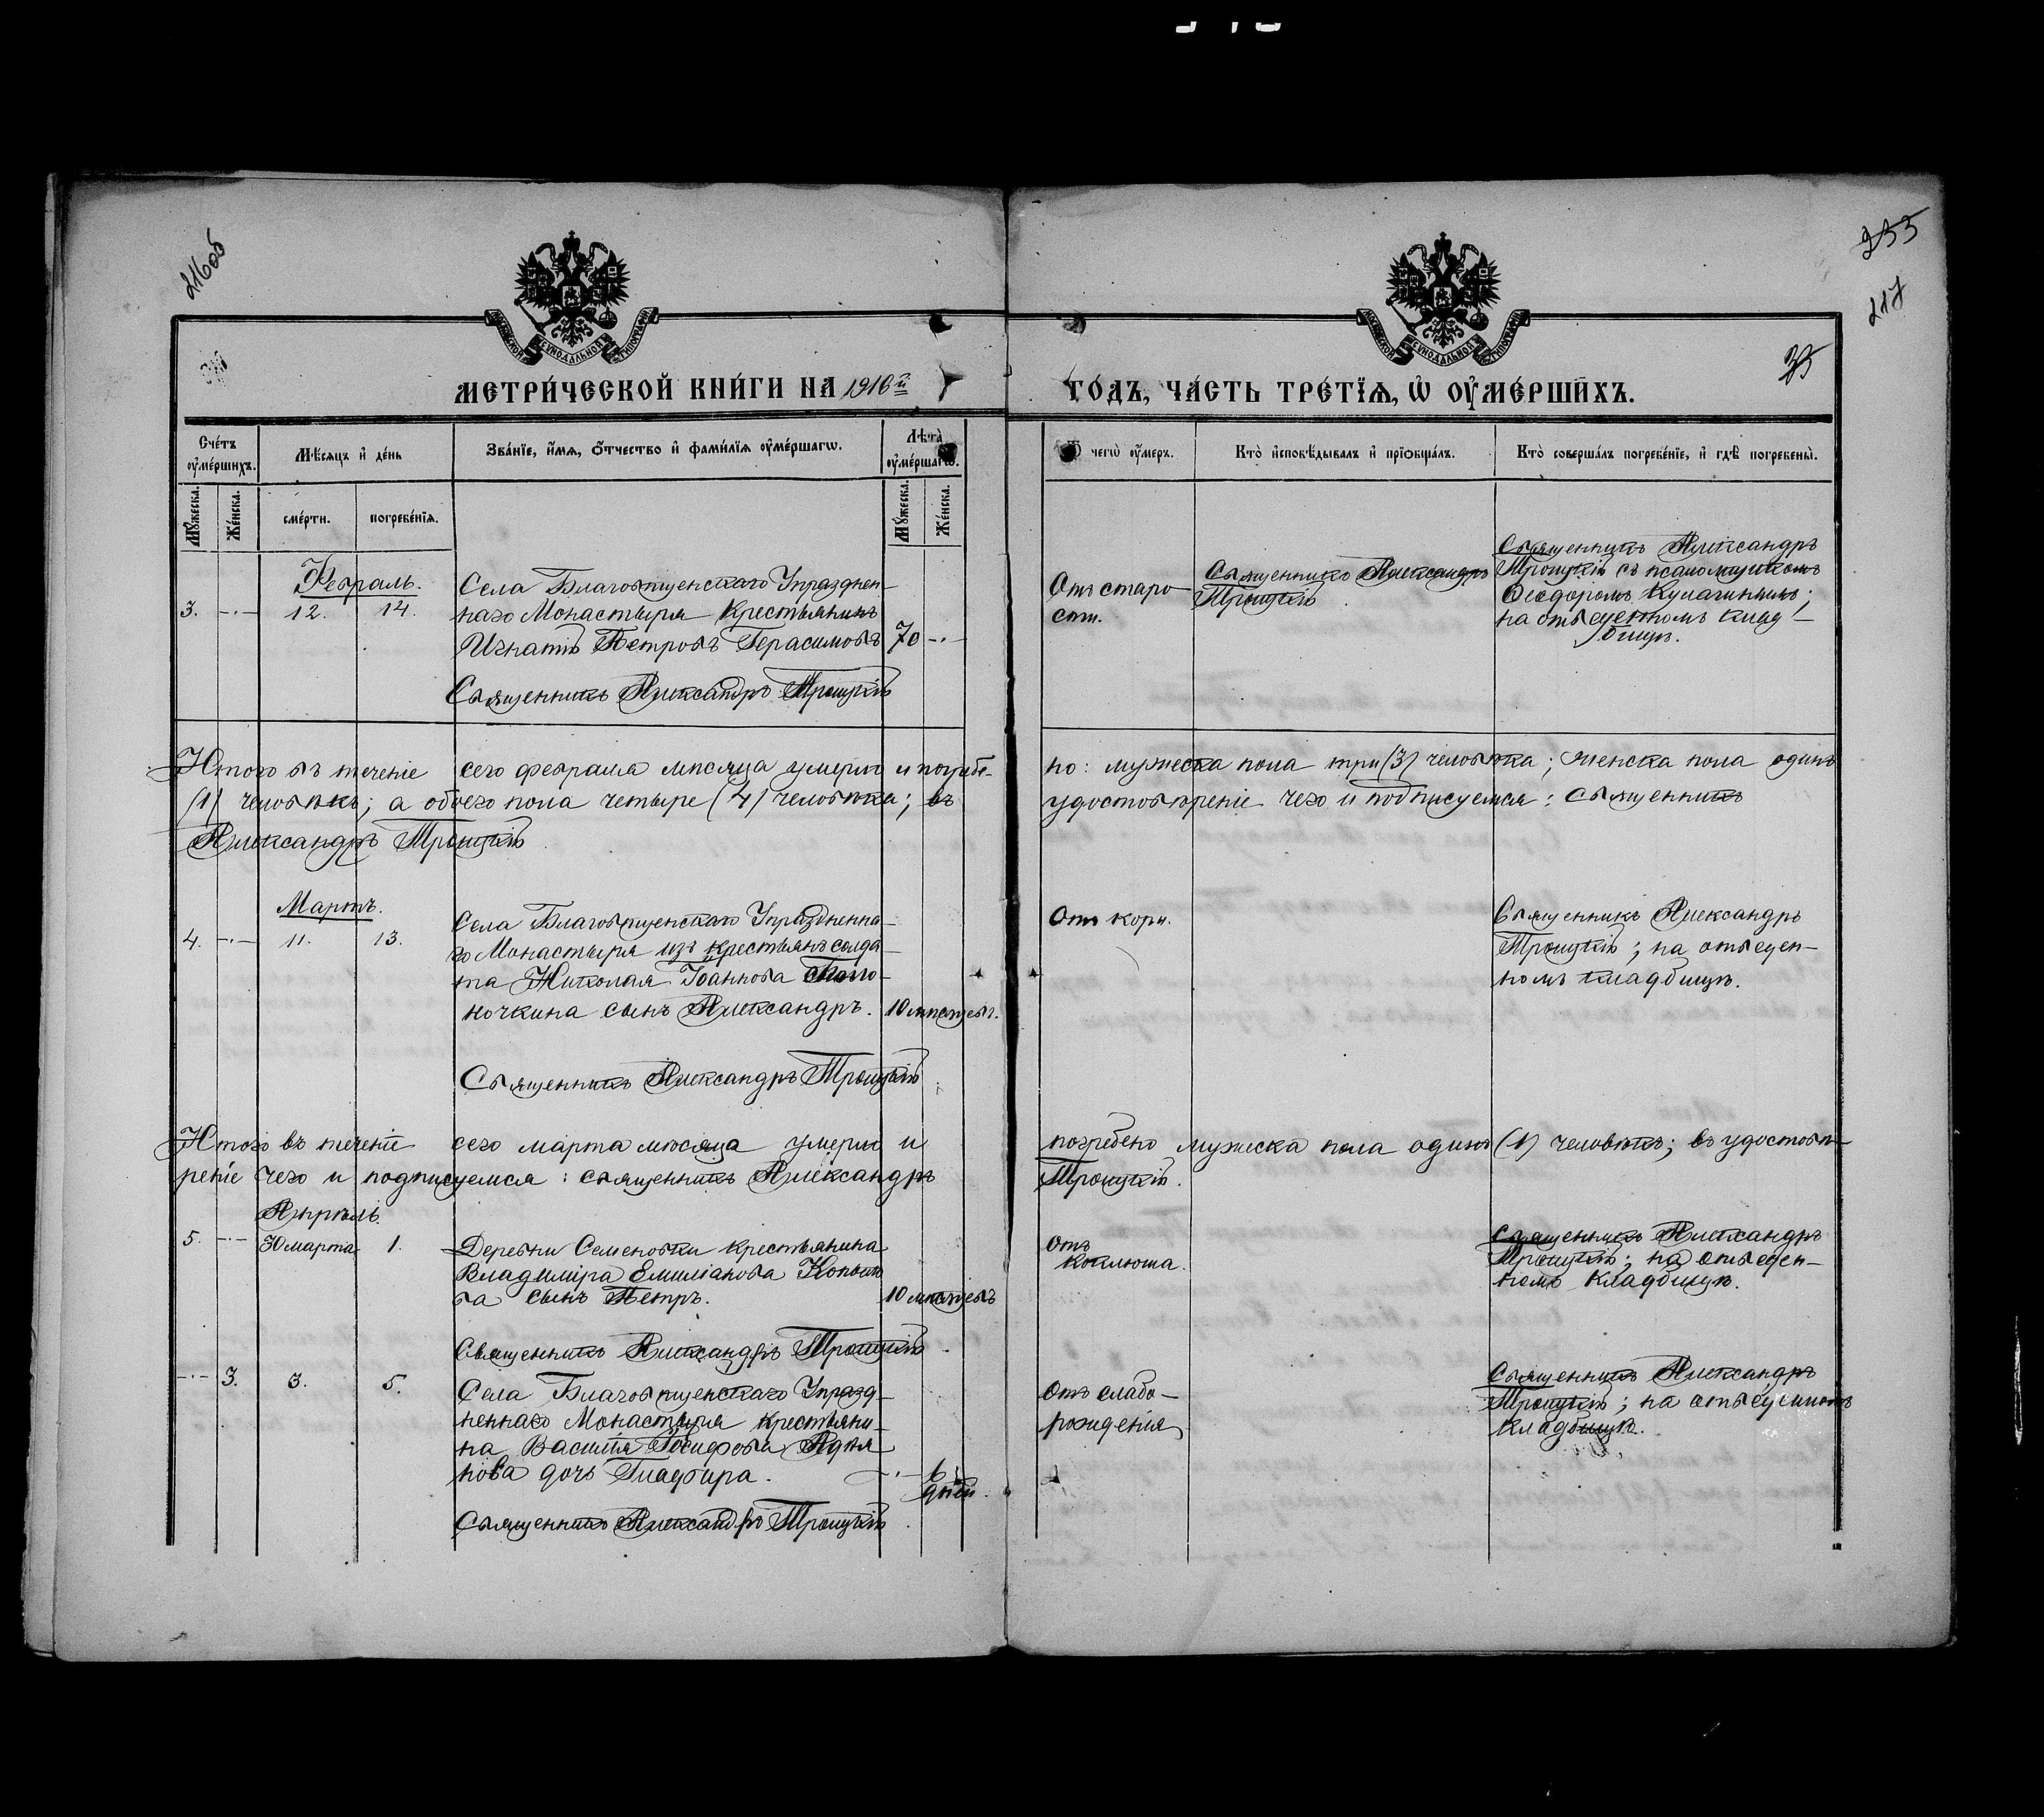 216об
233
217
35
МОСКОВСКОЙ СѴНОДАЛЬНОЙ ТИПОГРАФІИ
МОСКОВСКОЙ СѴНОДАЛЬНОЙ ТИПОГРАФІИ
МЕТРИ́ЧЕСКОЙ КНИ́ГИ НА 1916й
ГО́ДЪ, ЧА́СТЬ ТРЕ́ТЇѦ, Ѡ҆ ОУ҆МЕ́РШИХЪ.
Сче́тъ оу҆ме́ршихъ.
Мѣ́сяцъ и҆ де́нь
Зва́нїе, и҆́мѧ, ѻ҆́тчество и҆ фами́лїѧ оу҆ме́ршагѡ.
Лѣ́та оу҆ме́ршагѡ.
Ѿ чегѡ̀ оу҆́меръ.
Кто̀ и҆сповѣ́дывалъ и҆ прїѻбща́лъ.
Кто̀ соверша́лъ погребе́нїе, и҆ гдѣ̀ погребены̀.
Мꙋ́жеска.
Же́нска.
сме́рти.
погребе́нїѧ.
Мꙋ́жеска.
Же́нска.
Февраль.
3. -·- 12. 14.
Села Благовѣщенскаго Упразднен-
наго Монастыря крестьянинъ
Игнатій Петровъ Герасимовъ 70 -·-
Священникъ Александръ Троицкій
Отъ старо-
сти.
Священникъ Александръ
Троицкій.
Священникъ Александръ
Троицкій съ псаломщикомъ
Ѳеодоромъ Кулагинымъ;
на отведенномъ клад-
бищѣ.
Итого въ теченіе сего февраля мѣсяца умерло и погребе-
но: мужеска пола три (3) человѣка; женска пола одинъ
(1) человѣкъ; а обоего пола четыре (4) человѣка; въ
удостовѣреніе чего и подписуемся: священникъ
Александръ Троицкій
Мартъ.
4. -·- 11. 13.
Села Благовѣщенскаго Упразднена-
го Монастыря изъ крестьянъ солда
та Николая Іоаннова
ночкина сынъ Александръ. 10 мѣсяцевъ.
Священникъ Александръ Троицкій
Отъ кори.
Священникъ Александръ
Троицкій; на отведен-
номъ кладбищѣ.
Итого въ теченіе сего марта мѣсяца умерло и
погребено мужеска пола одинъ (1) человѣкъ; въ удостовѣ-
реніе чего и подписуемся: священникъ Александръ
Троицкій.
Апрѣль.
5. -·- 30 марта 1.
Деревни Семеновки крестьянина
Владиміра Емиліанова
ва сынъ Петръ. 10 мѣсяцевъ
Священникъ Александръ Троицкій.
Отъ
коклюша.
Священникъ Александръ
Троицкій; на отведен-
номъ кладбищѣ.
-·- 3. 3. 5.
Села Благовѣщенскаго Упразд-
неннаго Монастыря крестьяни-
на Василія Іосифова
нова дочь Глафира. -·- 6
дней.
Священникъ Александръ Троицкій.
Отъ слабо-
рожденія
Священникъ Александръ
Троицкій; на отведенномъ
кладбищѣ.